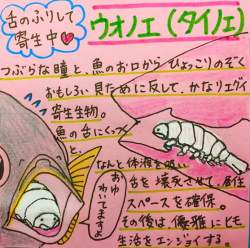 舌のふりして
寄生中♥
ウオノエ（タイノエ）
つぶらな瞳と、魚のお口からひょっこりのぞく
おもしろい見ために反して、かなりエグイ
寄生生物。
魚の舌にくっつくと、
なんと体液を吸い
舌を壊死させて、居住
スペースを確保。
その後は優雅にヒモ
生活をエンジョイする